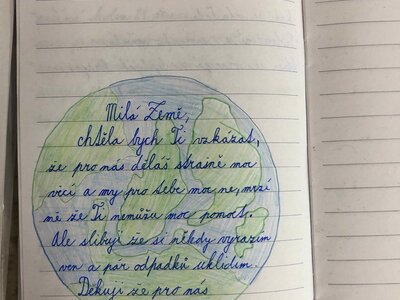 Milá Země,
chtěla bych Ti vzkázat,
že pro nás děláš strašně moc
věcí a my pro sebe moc ne, mrzí
mě že Ti nemůžu moc pomoct.
Ale slibuji že si někdy vyrazím
ven a pár odpadků uklidím.
Děkuji že pro nás